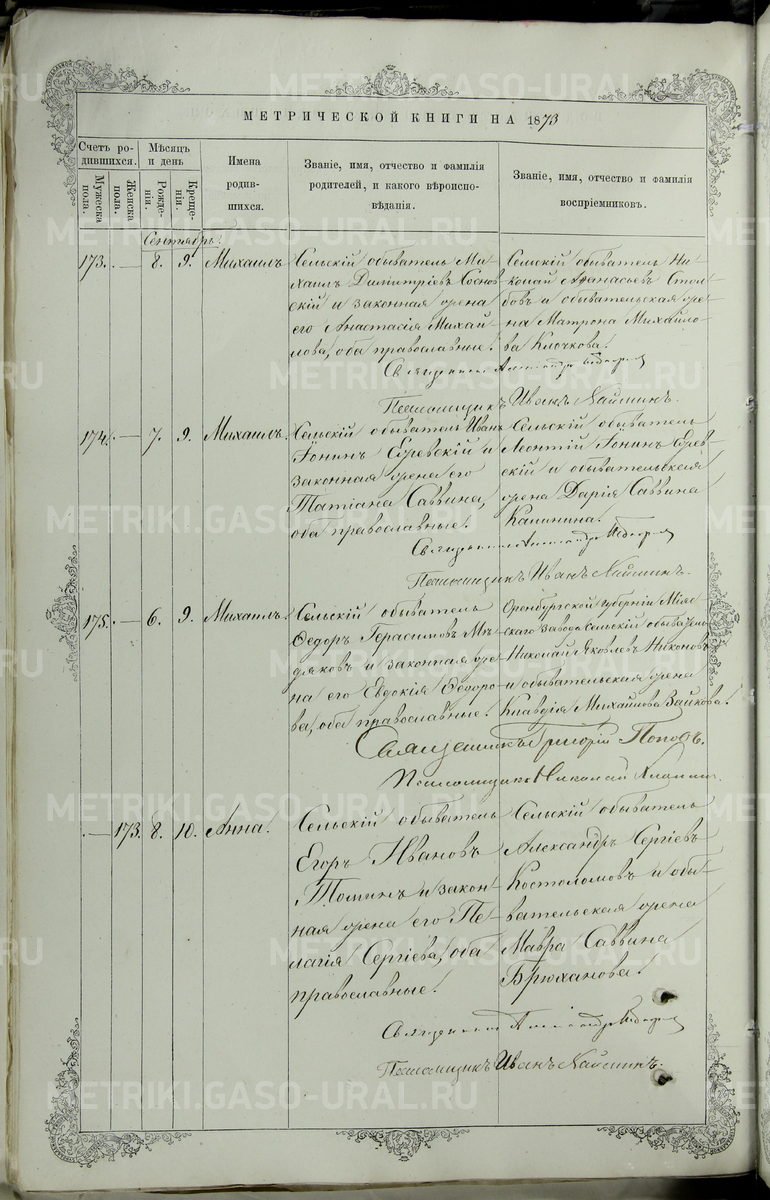 МЕТРИЧЕСКОЙ КНИГИ НА 1873
Счетъ ро-
дившихся.
Мѣсяцъ
и день
Мужеска
пола.
Женска
пола.
Рожде-
нія.
Креще-
нія.
Имена
родив-
шихся.
Званіе, имя, отчество и фамилія
родителей, и какого вѣроиспо-
вѣданія.
Званіе, имя, отчество и фамилія
воспріемниковъ.
Сентябрь.
173. — 8. 9. Михаилъ
Сельскій обыватель Ми-
хаилъ Димитріевъ Соснов
скій и законная жена
его Анастасія Михай-
лова, оба православные.
Сельскій обыватель Ни-
колай Афанасьевъ Стол-
бовъ и обывательская же-
на Матрона Михайло-
ва Клочкова.
Священникъ Александръ
Псаломщикъ Иванъ
174. — 7. 9. Михаилъ.
Сельскій обыватель Иванъ
Іонинъ и
законная жена его
Татіана Саввина,
оба православные.
Сельскій обыватель
Леонтій Іонинъ
скій и обывательская
жена Дарія Саввина
Калинина.
Священникъ Александръ
Псаломщикъ Иванъ
175. — 6. 9. Михаилъ.
Сельскій обыватель
Ѳедоръ Герасимовъ Мѣ-
дяковъ и законная же-
на его Евдокія Ѳедоро-
ва, оба православные.
Оренбургской губерніи Міяс-
скаго завода сельскій обыватель
Николай Яковлевъ Никоновъ
и обывательская жена
Клавдія Михайлова Зайкова.
Священникъ Григорій Поповъ.
Псаломщикъ Николай
— 173. 8. 10. Анна.
Сельскій обыватель
Егоръ Ивановъ
Томинъ и закон-
ная жена его Пе-
лагія Сергіева, оба
православные.
Сельскій обыватель
Александръ Сергіевъ
Костоломовъ и обы-
вательская жена
Мавра Саввина
Брюханова.
Священникъ Александръ
Псаломщикъ Иванъ
METRIKI.GASO-URAL.RU